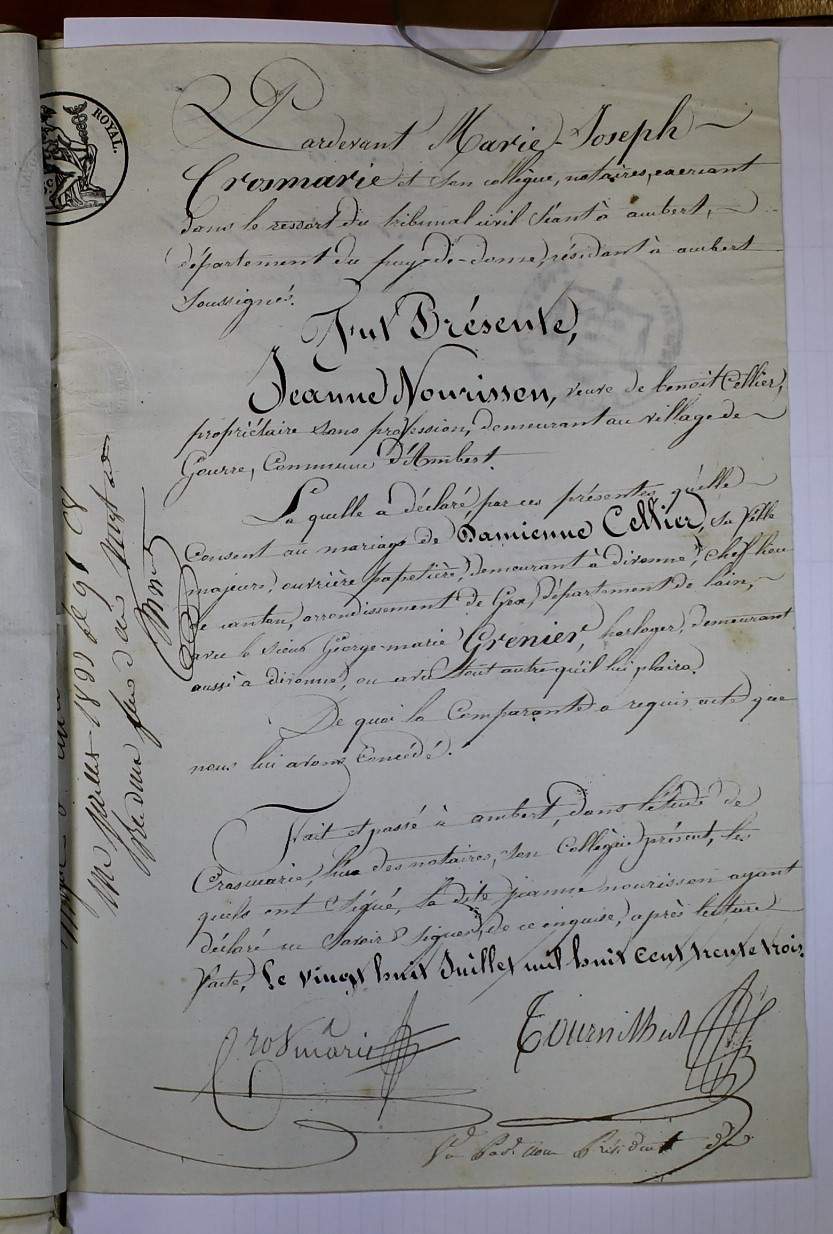 ROYAL.
Pardevant Marie-Joseph
Crosmarie et son collègue, notaires, exerçant
dans le ressort du tribunal civil séant à ambert,
département du puy-de-dome, résidant à ambert
soussignés.
Fut Présente,
Jeanne Nourisson, veuve de benoit Cellier,
propriétaire sans profession, demeurant au village de
Gourre, Commune d'Ambert.
La quelle a déclaré, par ces présentes, qu'elle
consent au mariage de Damienne Cellier, sa fille
majeure, ouvrière papetière, demeurant à divonne, chef lieu
de canton, arrondissement de Gex, département de lain,
avec le sieur George-marie Grenier, horloger, demeurant
aussi à divonne, ou avec tout autre qu'il lui plaira.
De quoi la Comparante a requis acte que
nous lui avons concédé.
Fait et passé à ambert, dans l'étude de
Crosmarie, l'un des notaires, son Collègue présent, les
quels ont signé, la dite jeanne nourisson ayant
déclaré ne savoir signer, de ce enquise, après lecture
faite, le vingt huit Juillet mil huit cent trente trois.
Crosmarie
Tournilhat
Président